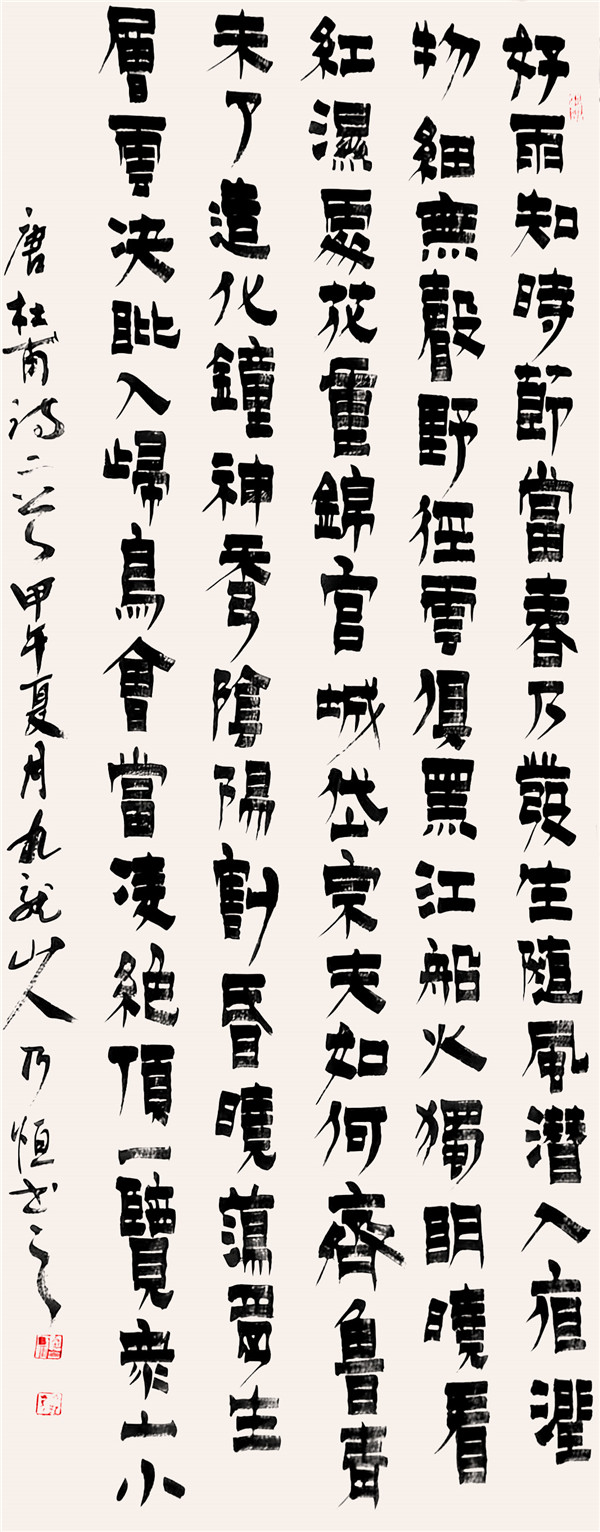 好雨知時節當春乃發生隨風潛入夜潤
物細無聲野徑雲俱黑江船火獨明曉看
紅濕處花重錦官城岱宗夫如何齊魯青
未了造化鐘神秀陰陽割昏曉蕩胸生
層雲決眦入歸鳥會當凌絕頂一覽衆山小
唐杜甫詩二首甲午夏月九龍山人乃恒書之